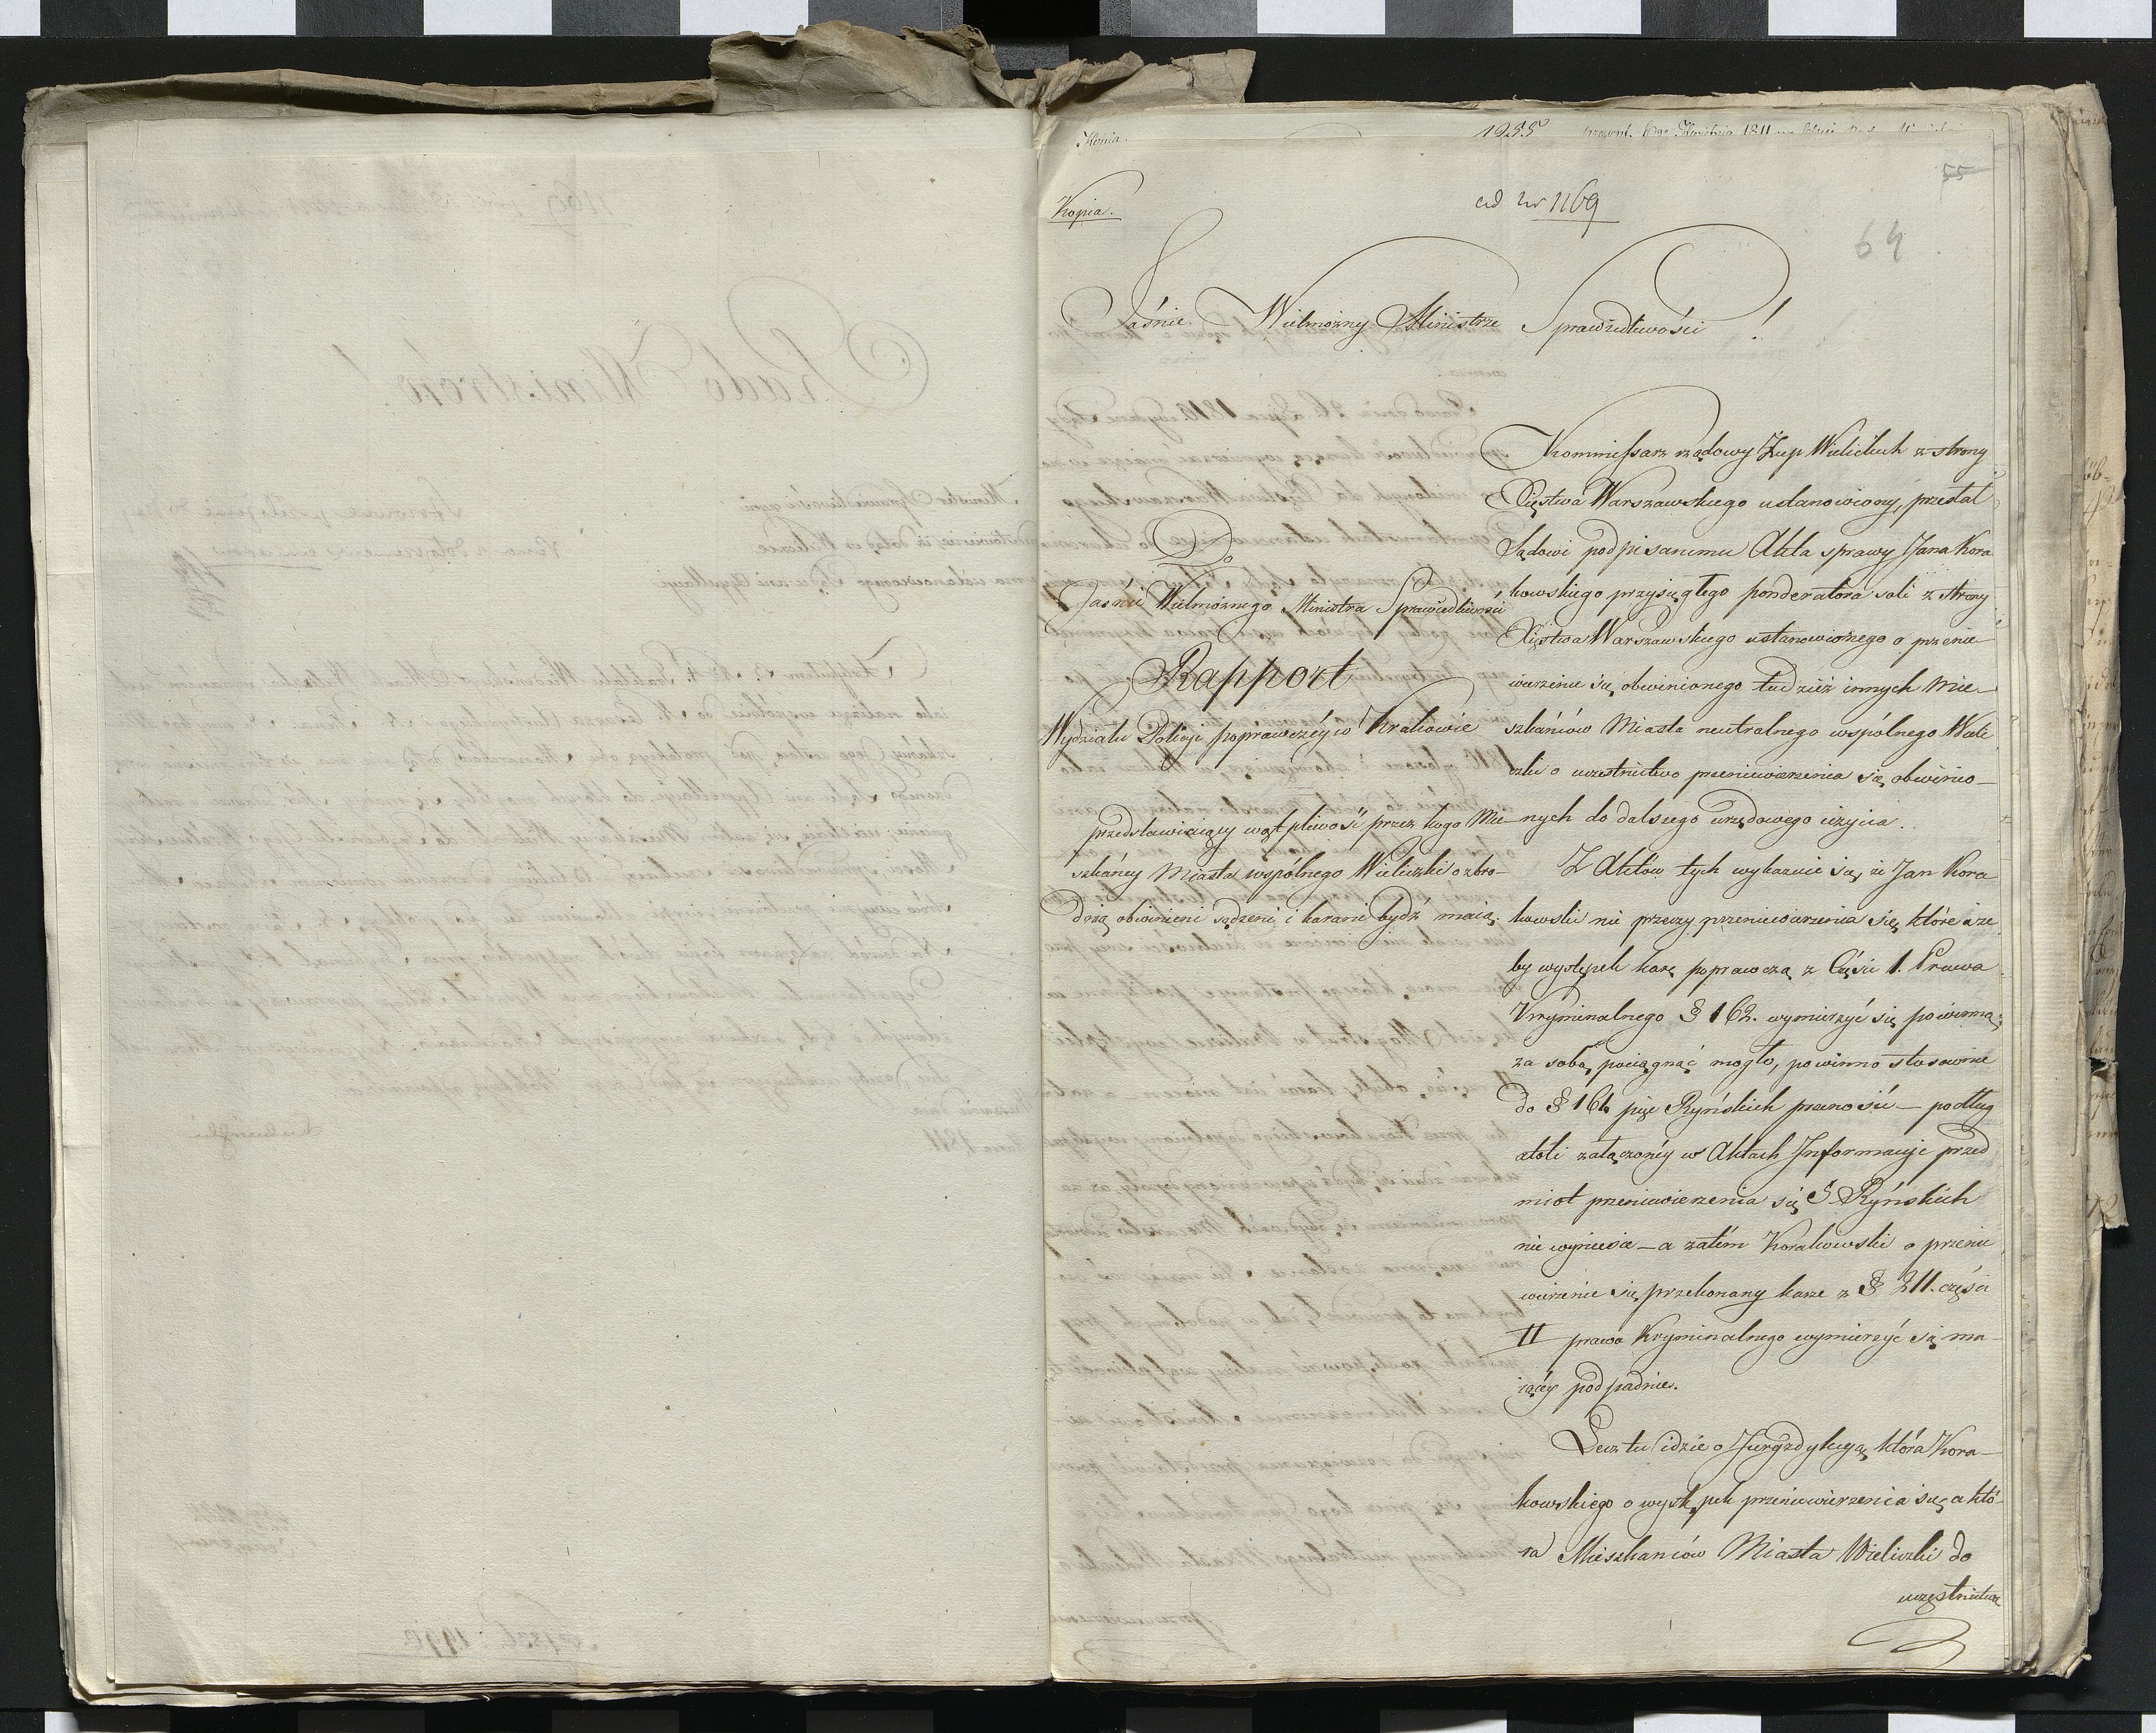 Kopia.
1255 praesent. Kwietnia 1811
55
Kopia.
ad Nr 1169
64
Jaśnie Wielmożny Ministrze Sprawiedliwości!
Do
Jaśnie Wielmożnego Ministra Sprawiedliwości
Rapport
Wydziału Policyi poprawczéy w Krakowie
przedstawiaiący wątpliwość przez kogo Mie-
szkańcy Miasta wspólnego Wieliczki o zbro-
dnią obwinieni sądzeni i karani bydź maią.
Kommissarz rządowy Żup Wielickich z strony
Xięstwa Warszawskiego ustanowiony, przesłał
Sądowi podpisanemu Akta sprawy Jana Kora
kowskiego przysięgłego ponderatora soli z strony
Xięstwa Warszawskiego ustanowionego o przenie-
wierzenie się obwinionego tudzież innych Mie-
szkańców Miasta neutralnego wspólnego Wieli
czki o uczestnictwo przeniewierzenia się obwinio-
nych do dalszego urzędowego użycia.
Z Aktów tych wykazuie się, że Jan Kora
kowski nie przeczy przeniewierzenia się, które aże
by występek karę poprawczą z Części 1. Prawa
Kryminalnego § 162. wymierzyć się powinną
za sobą pociągnąć mogło, powinno stosownie
do § 161 pięć Ryńskich przenosić – podług
atoli załączonéy w Aktach Informacyi przed
miot przeniewierzenia się 5 Ryńskich
nie wyniesie – a zatém Korakowski o przenie
wierzenie się przekonany karze z § 211. części
II prawa Kryminalnego wymierzyć się ma
iącéy podpadnie.
Lecz tu idzie o Jurgzdykcyą, która Kora-
kowskiego o występek przeniewierzenia się, a któ-
ra Mieszkańców Miasta Wieliczki do
uczęstnictwa